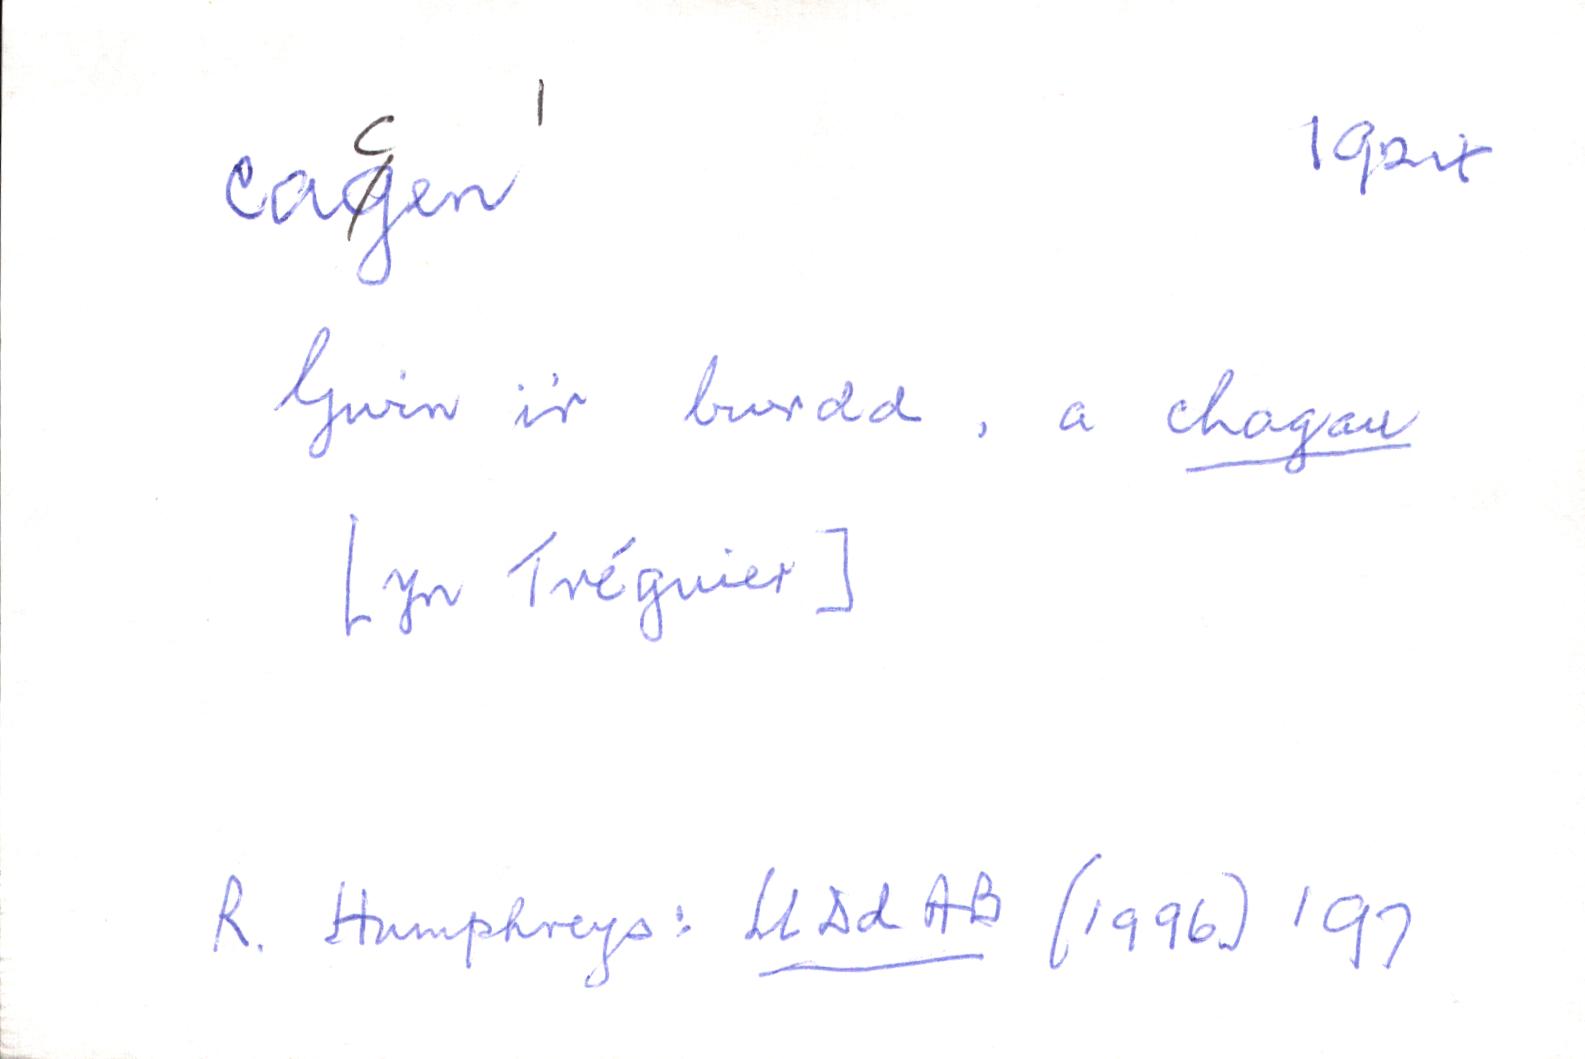 cacen 1 192x
Gwin i'r bwrdd, a chagau
[yn Tréguier]
R. Humphreys: Ll Dd AB (1996) 197